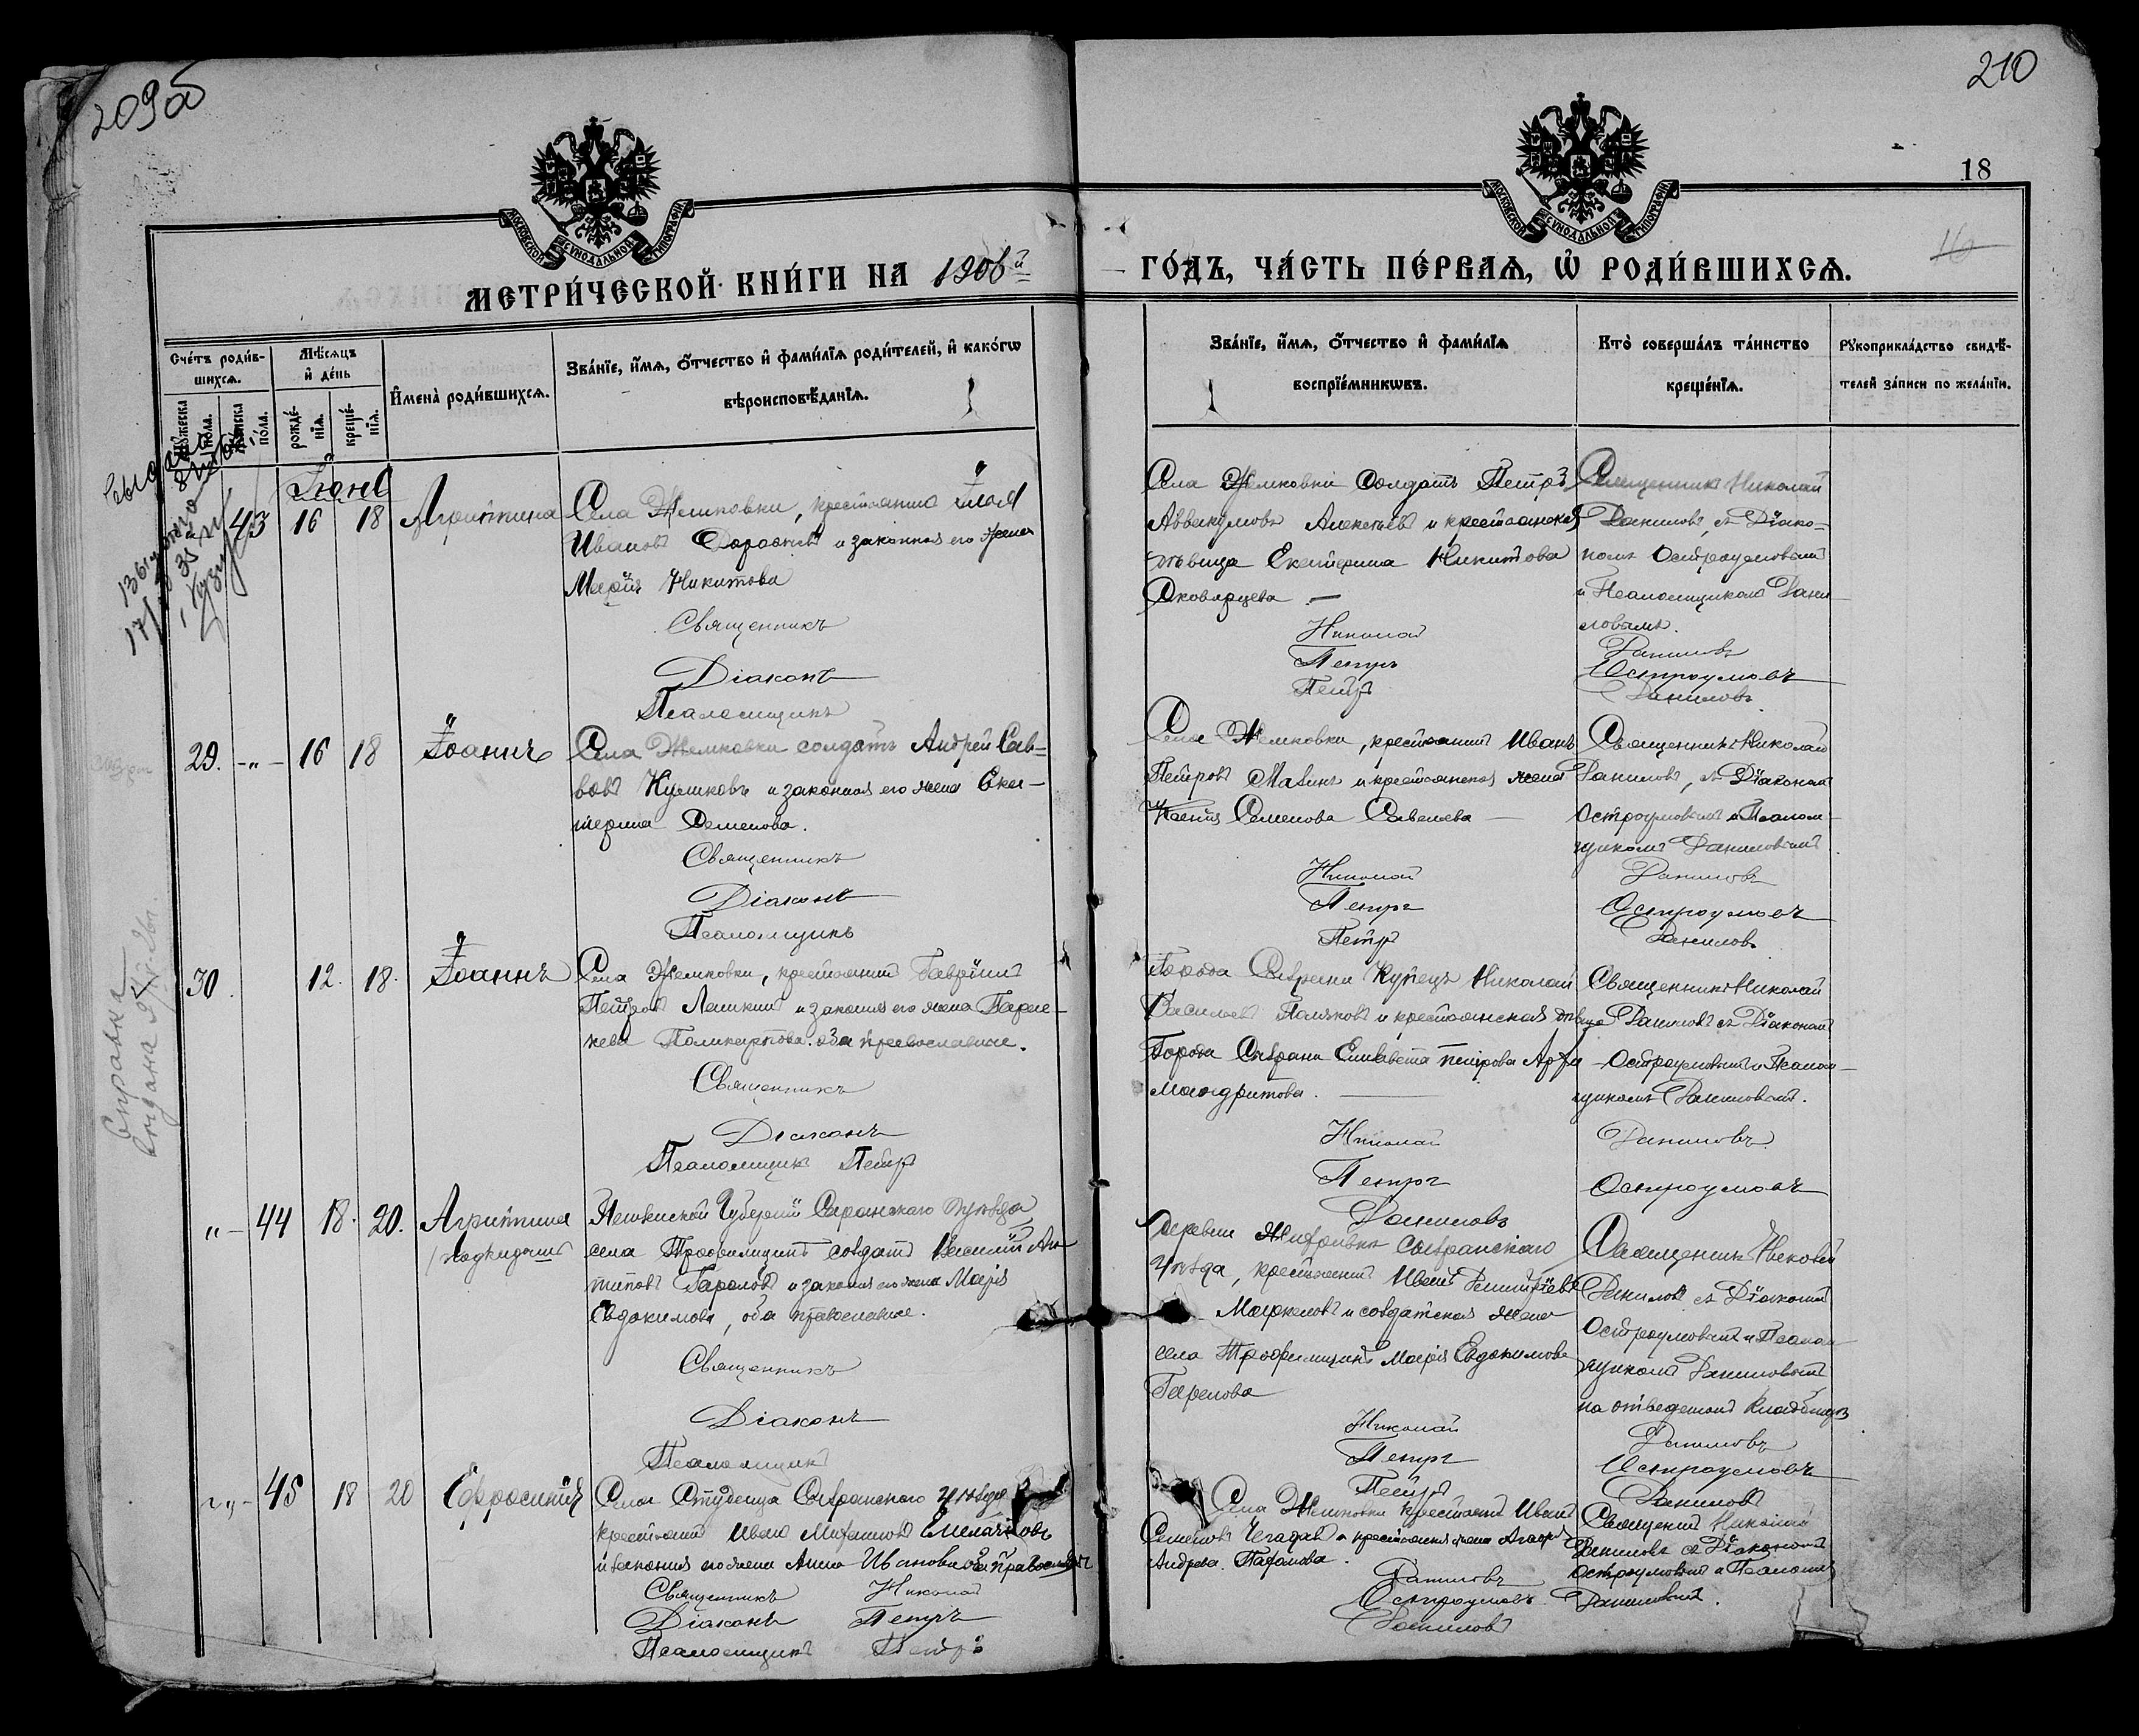 209об
210
18
16
МОСКОВСКОЙ СѴНОДАЛЬНОЙ ТИПОГРАФІИ
МОСКОВСКОЙ СѴНОДАЛЬНОЙ ТИПОГРАФІИ
МЕТРИ́ЧЕСКОЙ КНИ́ГИ НА 1906й
ГО́ДЪ, ЧА́СТЬ ПЕ́РВАѦ, Ѡ҆ РОДИ́ВШИХСѦ.
Сче́тъ роди́в-
шихсѧ.
Мѣ́сѧцъ
и҆ де́нь
И҆мена̀ роди́вшихсѧ.
Зва́нїе, и҆́мѧ, ѻ҆́тчество и҆ фами́лїѧ роди́телей, и҆ како́гѡ
вѣроисповѣ́данїѧ.
Мꙋ́жеска
по́ла.
Же́нска
по́ла.
рожде́-
нїѧ.
креще́-
нїѧ.
Зва́нїе, и҆́мѧ, ѻ҆́тчество и҆ фами́лїѧ
воспрїе́мникѡвъ.
Кто̀ соверша́лъ та́инство
креще́нїѧ.
Рꙋкоприкла́дство свидѣ́-
телей за́писи по жела́нїю.
Іюнь
43 16 18 Агриппина
Села Жемковки, крестьянинъ
Ивановъ и законная его жена
Марія Никитова
Священникъ
Діаконъ
Псаломщикъ
Села Жемковки Солдатъ Петръ
Аввакумовъ Алексѣевъ и крестьянская
дѣвица Екатерина Никитова
Скворцева
Николай
Петръ
Петръ
Священникъ Николай
Даниловъ, съ Діако-
номъ Остроумовымъ
и Псаломщикомъ Дани-
ловымъ.
Даниловъ
Остроумовъ
Даниловъ
29. -"- 16 18 Іоаннъ
Села Жемковки солдатъ Андрей Сав-
вовъ Куликовъ и законная его жена Ека-
терина Семенова.
Священникъ
Діаконъ
Псаломщикъ
Села Жемковки, крестьянинъ Иванъ
Петровъ и крестьянская жена
Семенова Савельева
Николай
Петръ
Петръ
Священникъ Николай
Даниловъ, съ Діакономъ
Остроумовымъ и Псалом-
щикомъ Даниловымъ
Даниловъ
Остроумовъ
Даниловъ
30. 12. 18. Іоаннъ
Села Жемковки, крестьянинъ Гавріилъ
Петровъ Лашкинъ и законная его жена Параске-
Поликарпова. оба православные.
Священникъ
Діаконъ
Псаломщикъ Петръ
Города Сызрани Купецъ Николай
Васильевъ Поляковъ и крестьянская дѣвица
Города Сызрани Елизавета Петрова Архи-
мандритова.
Николай
Петръ
Даниловъ
Священникъ Николай
Даниловъ съ Діакономъ
Остроумовымъ и Псалом-
щикомъ Даниловымъ.
Даниловъ
Остроумовъ
"- 44 18. 20. Агриппина
Пензенской Губерніи Саранскаго уѣзда,
села Трофимщинъ солдатъ Василій Ан-
типовъ и законная его жена Марія
Евдокимова, оба православные.
Священникъ
Діаконъ
Псаломщикъ
Деревни Сызранскаго
уѣзда, крестьянинъ Иванъ Димитріевъ
Маркеловъ и солдатская жена
села Трофимщинъ Марія Евдокимова
Николай
Петръ
Петръ
Священникъ Николай
Даниловъ съ Діакономъ
Остроумовымъ и Псалом-
щикомъ Даниловымъ
на отведенномъ кладбищѣ
Даниловъ
Остроумовъ
Даниловъ
-"- 45 18 20 Ефросинія
Села Студенца Сызранскаго уѣзда
крестьянинъ Иванъ Емелачковъ
и законная его жена Анна Иванова оба православные
Священникъ Николай
Діаконъ Петръ
Псаломщикъ Петръ
Села Жемковки крестьянинъ Иванъ
Семеновъ и крестьянская жена
Андреева
Даниловъ
Остроумовъ
Даниловъ
Священникъ Николай
Даниловъ съ Діакономъ
Остроумовымъ и Псаломщ
Даниловымъ.
Справка
выдана